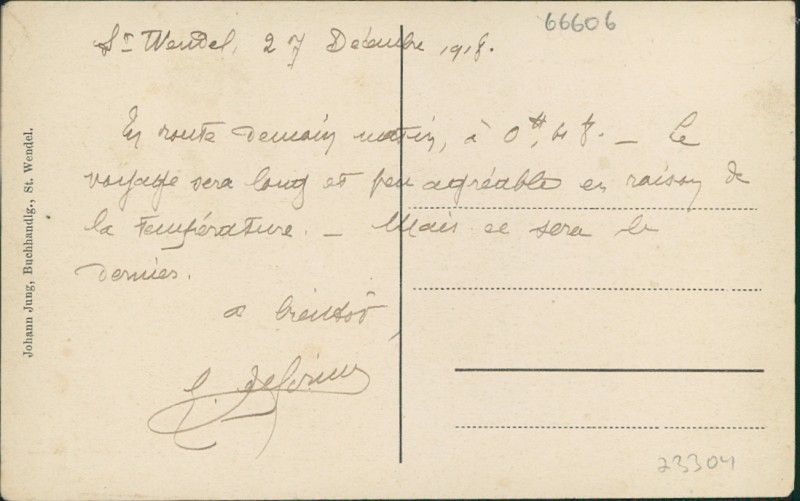 66606
St Wendel, 27 Décembre 1918.
En route demain matin, à 0H,48. — Le
voyage sera long et peu agréable en raison de
la température. — Mais ce sera le
dernier.
a bientôt,
Johann Jung, Buchhandlg., St. Wendel.
23304